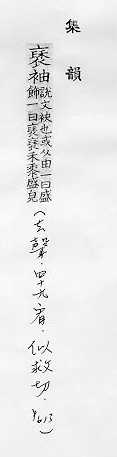 集韻
褎袖說文袂也或从由一曰盛
飾一曰褎褎禾黍盛皃
(去聲．四十九宥．似救切．P613)